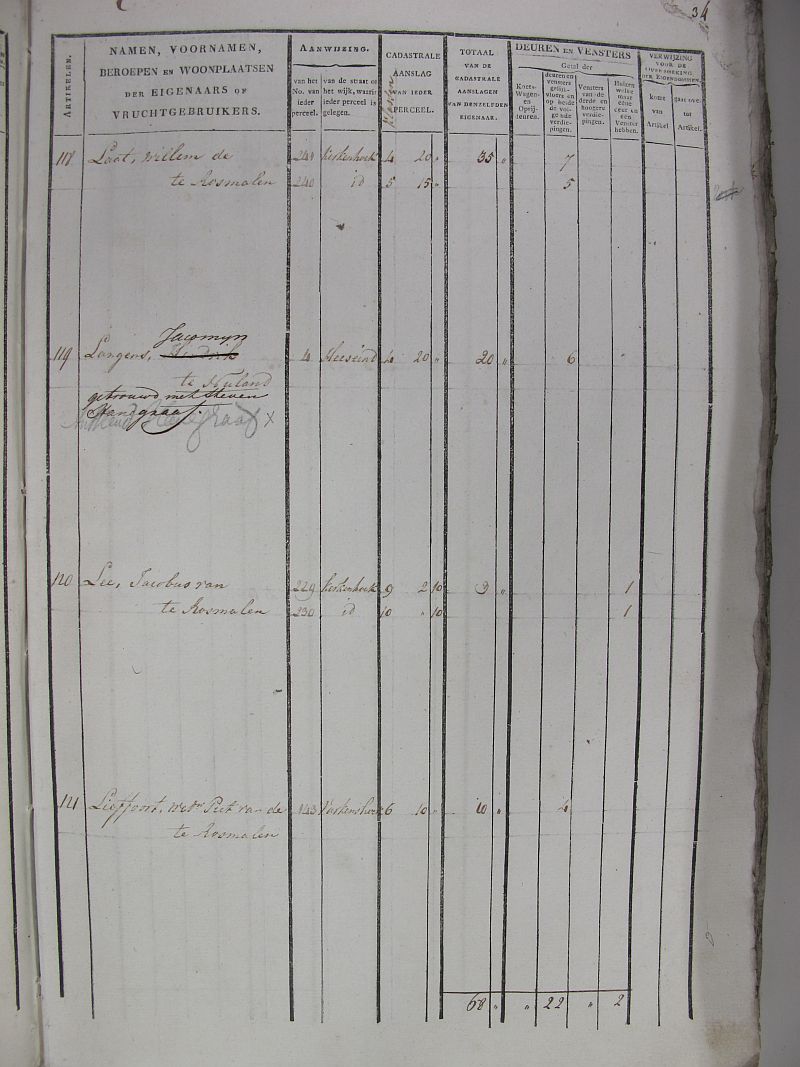 34
ARTIKELEN.
NAMEN, VOORNAMEN,
BEROEPEN EN WOONPLAATSEN
DER EIGENAARS OF
VRUCHTGEBRUIKERS.
AANWIJZING.
van het No. van ieder perceel.
van de straat of het wijk, waarin ieder perceel is gelegen.
CADASTRALE
AANSLAG
VAN IEDER
PERCEEL.
Klassen
TOTAAL
VAN DE
CADASTRALE
AANSLAGEN
VAN DENZELFDEN
EIGENAAR.
DEUREN EN VENSTERS
Getal der
Koets- Wagen- en Oprij- deuren.
deuren en vensters gelijk- vloers en op beide de vol- gende verdie- pingen.
Vensters van de derde en hoogere verdie- pingen.
Huizen welke maar eene deur en een Venster hebben.
VERWIJZING
VOOR DE
OVERBOEKING
DER EIGENDOMMEN.
komt van Artikel
gaat over tot Artikel.
118 Laat, Willem de 241 Kerkenhoek 4 20 „ 35 „ 7
te Rosmalen 240 id 5 15 „ 5
Jacomijn
119 Langens, Hendrik 4 Heeseind 4 20 „ 20 „ 6
te Nuland
getrouwd met Steven
Handgraaf.
Handgraaf X
120 Lee, Jacobus van 229 Kerkenhoek 9 2 10 3 „ 1
te Rosmalen 230 id 10 „ 10 1
121 Lieffoort, Wede Piet van de 143 Varkenshoek 6 10 „ 10 „ 4
te Rosmalen
68 „ „ 22 „ 2